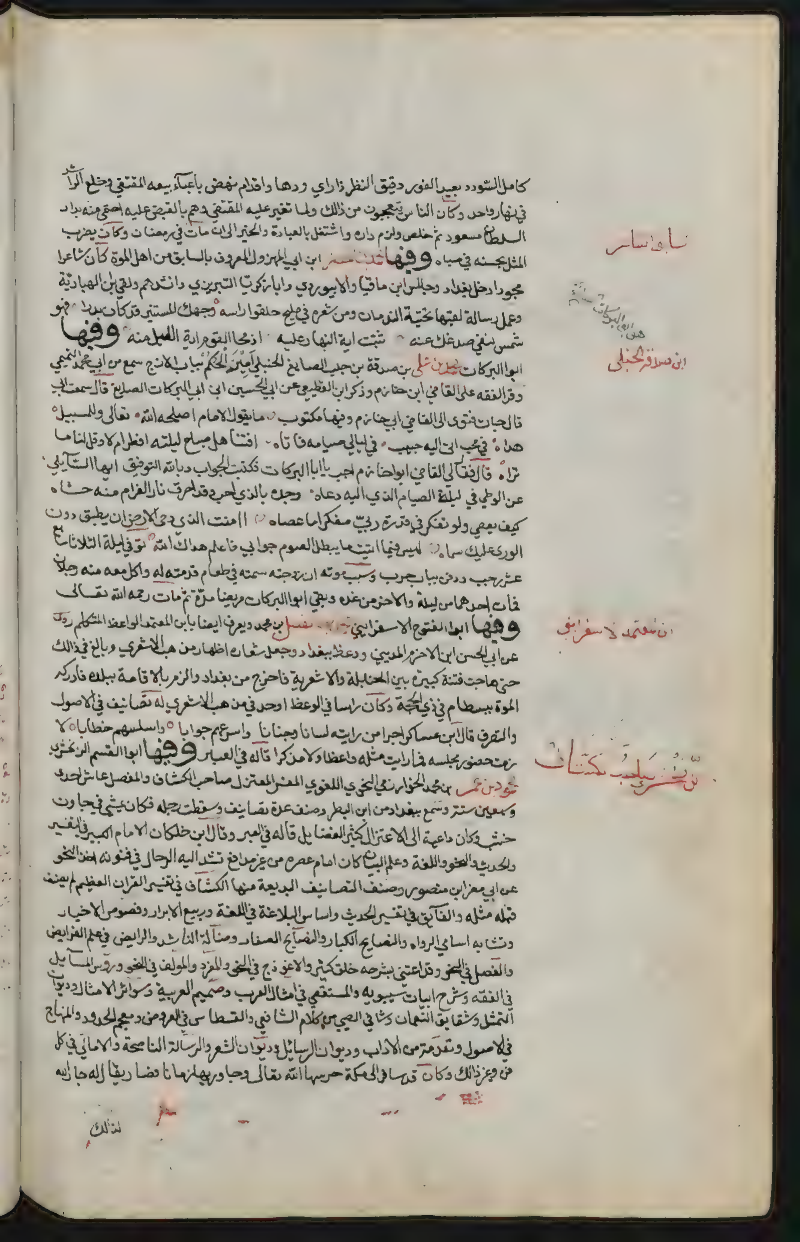 كامل السودد بعيد الغور دقيق النظر ذا راي ودها واقدام نهض باعباء بيعه المقتفي وخلع الراشد
في نهار واحد وكان الناس يتعجبون من ذلك ولما تغير عليه المقتفي وهم بالقبض عليه احتمى منه بدار
السلطان مسعود ثم خلص ولزم داره واشتغل بالعبادة والخير الى ان مات في رمضان وكان يضرب
المثل بحسنه في صباه وفيها ابن ابي المهزول المعروف بالسابق من اهل المعرة كان شاعرا
مجودا دخل بغداد وجالس ابن ماقيا والابيوردي وابا زكريا التبريزي وانشدهم ولقي ابن الهبارية
وعمل رسالة لقبها تحية الندمان ومن شعره في مليح حلقوا راسه وجهك المستنير قد كان بدرا فهو
شمس لنفي صدغك عنه ثبتت اية النهار عليه اذ محا القوم اية الليل منه وفيها
ابو البركات بن صدقة بن جلب الصايغ الحنبلي امين الحكم بباب الازج سمع من ابي محمد التميمي
وقرا الفقه على القاضي ابن خازم وذكر ابن القطيعي عن ابي الحسين ابن ابي البركات الصايغ قال سمعت ابي
قال جات فتوى الى القاضي ابي خازم وفيها مكتوب ما يقول الامام اصلحه الله تعالى وللسبيل
هداه في محب اتى اليه حبيب في ليالي صيامه فاتاه افتنا هل صباح ليلته افطر ام لا وقل لنا ما
تراه قال فقال لي القاضي ابو خازم اجب يا ابا البركات فكتبت الجواب وبالله التوفيق ايها السائلي
عن الوطي في ليلة الصيام الذي اليه دعاه وجده بالذي احب وقد احرق نار الغرام منه حشاه
كيف يعصي ولو تفكر في قدرة ربي مفكر ما عصاه اامنت الذي دحى الارض ان يطبق دون
الورى عليك سماه ليس فيما اتيت ما يبطل الصوم جوابي فاعلم هداك الله توفي ليلة الثلاثا سابع
عشر رجب ودفن بباب حرب وسبب موته ان زوجته سمته في طعام قدمته له واكل معه منه رجلان
فمات احدهما من ليلة والاخر من غده وبقي ابو البركات مريضا مدة ثم مات رحمه الله تعالى
وفيها ابو الفتوح الاسفرايني محمد بن الفضل بن محمد ويعرف ايضا بابن المعتمد الواعظ المتكلم روى
عن ابي الحسن ابن الاخرم المديني ووعظ ببغداد وجعل شعاره اظهار مذهب الاشعري وبالغ في ذلك
حتى هاجت فتنة كبيرة بين الحنابلة والاشعرية فاخرج من بغداد والزم بالاقامة ببلده فادركه
الموت ببسطام في ذي الحجة وكان راسا في الوعظ اوحد في مذهب الاشعري له تصانيف في الاصول
والتصوف قال ابن عساكر اجرا من رايته لسانا وجنانا واسرعهم جوابا واسلسهم خطابا لا
زمت حضور مجلسه فما رايت مثله واعظا ولا مذكرا قاله في العبر وفيها ابو القسم الزمخشري
محمود بن عمر بن محمد الخوارزمي النحوي اللغوي المفسر المعتزلي صاحب الكشاف والمفصل عاش احدى
وسبعين سنة وسمع ببغداد من ابن البطر وصنف عدة تصانيف وسقطت رجله فكان يمشي في جاون
خشب وكان داعية الى الاعتزال كثير الفضايل قاله في العبر وقال ابن خلكان الامام الكبير في التفسير
والحديث والنحو واللغة وعلم البيان كان امام عصره من غير مدافع تشد اليه الرحال في فنونه اخذ النحو
عن ابي مضر ابن منصور وصنف التصانيف البديعة منها الكشاف في تفسير القران العظيم لم يصنف
قبله مثله والفايق في تفسير الحديث واساس البلاغة في اللغة وربيع الابرار وفصوص الاخبار
ومتشابه اسامي الرواه والنصايح الكبار والنصايح الصغار وضالة الناشد والرايض في علم الفرايض
والمفصل في النحو وقد اعتنى بشرحه خلق كثير والانموذج في النحو والمفرد والمولف في النحو وروس المسايل
في الفقه وشرح ابيات سيبويه والمستقصي في امثال العرب وصميم العربية وسوائر الامثال وديوان
التمثل وشقايق النعمان وشافي العي من كلام الشافعي والقسطاس في العروض ومعجم الحدود والمنهاج
في الاصول ومقدمة من الاداب وديوان الرسايل وديوان الشعر والرسالة الناصحة والامالي في كل
فن وغير ذلك وكان قد سافر الى مكة حرسها الله تعالى وجاور بها زمانا فصار يقال له جار الله
لذلك
ابن صدقه الحنبلي
ابن المعتمد الاسفرايني
الزمخشري صاحب الكشاف